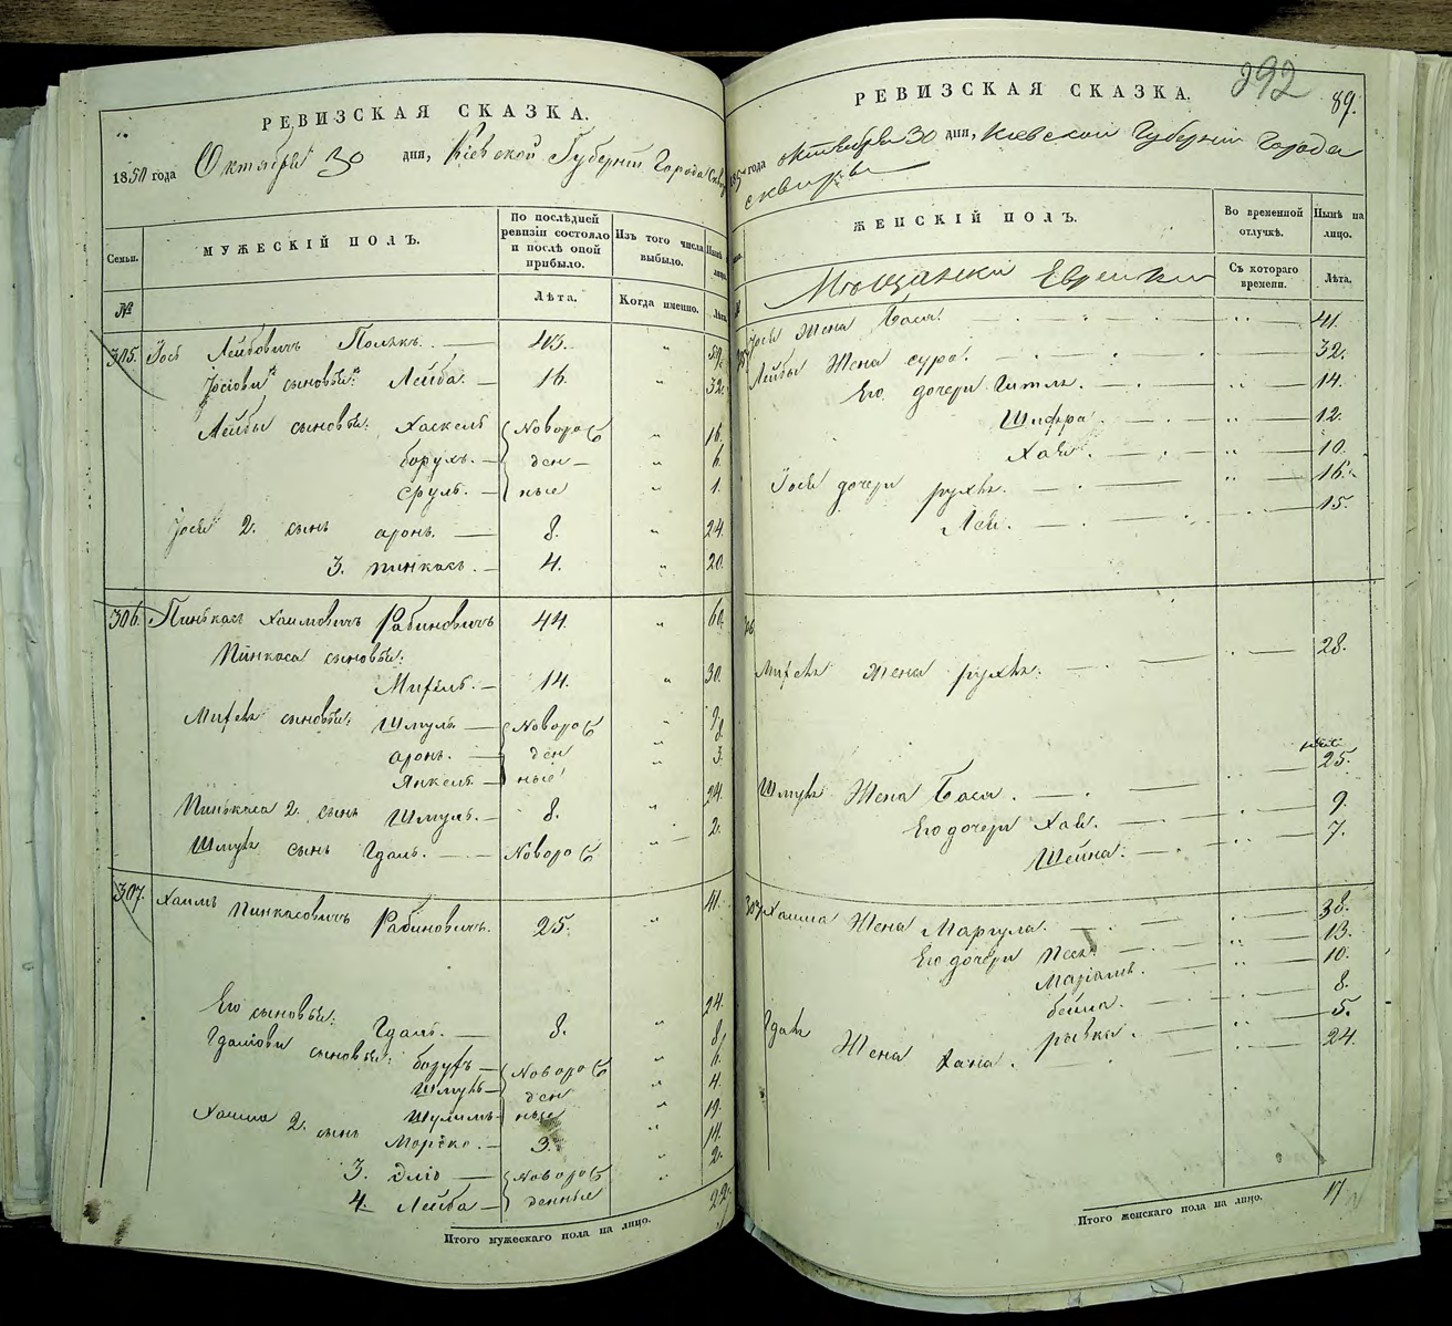 РЕВИЗСКАЯ СКАЗКА.
1850 года Октября 30 дня, Кіевской Губерніи Города
Семьи.
МУЖЕСКІЙ ПОЛЪ.
По послѣдней ревизіи состояло и послѣ оной прибыло.
Изъ того числа выбыло.
№
Лѣта.
Когда именно.
Лѣта
305. Іось Лейбовичъ Полякъ. 43. " 59.
Іосіовы сыновья: Лейба. 16. " 32.
Лейбы сыновья: Хаскель Новорож " 16.
борухъ. ден " 6.
сруль. ные " 1.
Іося 2. сынъ аронъ. 8. " 24.
3. пинкасъ. 4. " 20.
306. Пинькас Хаимовичъ Рабиновичъ 44. " 60.
Пинкаса сыновья:
14. " 30.
сыновья: Шмуль Новорож " 9.
аронъ. ден " 8.
Янкель ные " 3.
Пинькаса 2. сынъ Шмуль. 8. " 24.
Шмуля сынъ Гдаль. Новорож " 2.
307. Хаимъ Пинкасовичъ Рабиновичъ. 25. " 41.
Его сыновья: Гдаль. 8. " 24.
сыновья: Новорож " 8.
Шмуль ден " 6.
Шулимъ ные " 4.
Хаима 2. сынъ Мордко. 3. " 19.
3. Новорож " 14.
4. Лейба денные " 2.
Итого мужескаго пола на лицо. 22.
292 89.
РЕВИЗСКАЯ СКАЗКА.
года октября 30 дня, Кіевской Губерніи Города
сквиры
ЖЕНСКІЙ ПОЛЪ.
Во временной отлучкѣ.
Нынѣ на лицо.
Мѣщански Еврейки
Съ котораго времени.
Лѣта.
Іося Жена Бася. 41.
Лейбы Жена сура. 32.
Его дочери Гитля. 14.
Шифра. 12.
Хая. 10.
Іося дочери рухля. 16.
Лея. 15.
Жена рухля. 28.
Шмуля Жена Бася. 25.
Его дочери Хая. 9.
Шейна. 7.
307 Хаима Жена Маргула. 38.
Его дочери Песя. 13.
Маріамъ. 10.
бейла. 8.
рывка. 5.
Гдаля Жена Хана. 24.
Итого женскаго пола на лицо. 17